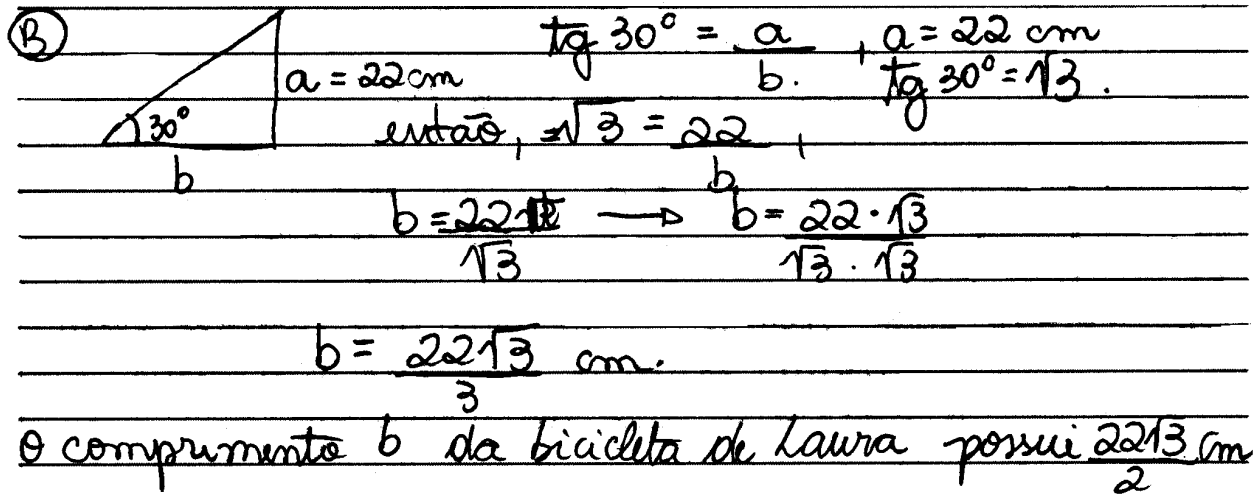 B
tg 30° = a/b. , a = 22 cm
a = 22 cm
tg 30° = √3.
30°
então, = √3 = 22/b ,
b
b = 22/√3 → b = 22·√3/√3·√3
b = 22√3/3 cm.
O comprimento b da bicicleta de Laura possui 22√3/2 cm